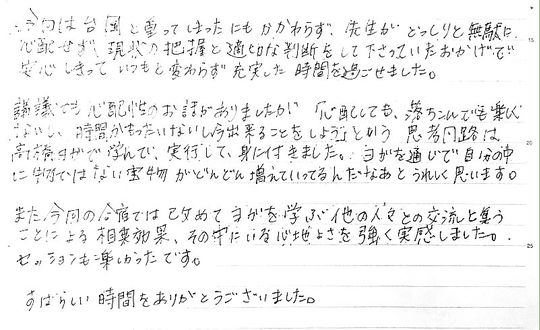 今回は台風と重ってしまったにもかかわらず、先生が どっしりと無駄に
心配せず、現状の把握と適切な判断をして下さっていたおかげで
安心しきって いつもと変わらず 充実した 時間を過ごせました。
講議でも 心配性のお話がありましたが 「心配しても、落ちこんでも楽しく
ないし、時間がもったいないし今出来ることをしよう」という 思考回路は
高橋ヨガで学んで、実行して、身に付きました。ヨガを通じて自分の中
に物ではない宝物がどんどん増えていってるんだなあとうれしく思います。
また、今回の合宿では改めて ヨガを学ぶ他の人々との交流と集う
ことによる相乗効果、その中にいる心地よさを強く実感しました。
セッションも楽しかったです。
すばらしい時間をありがとうございました。
15
20
25